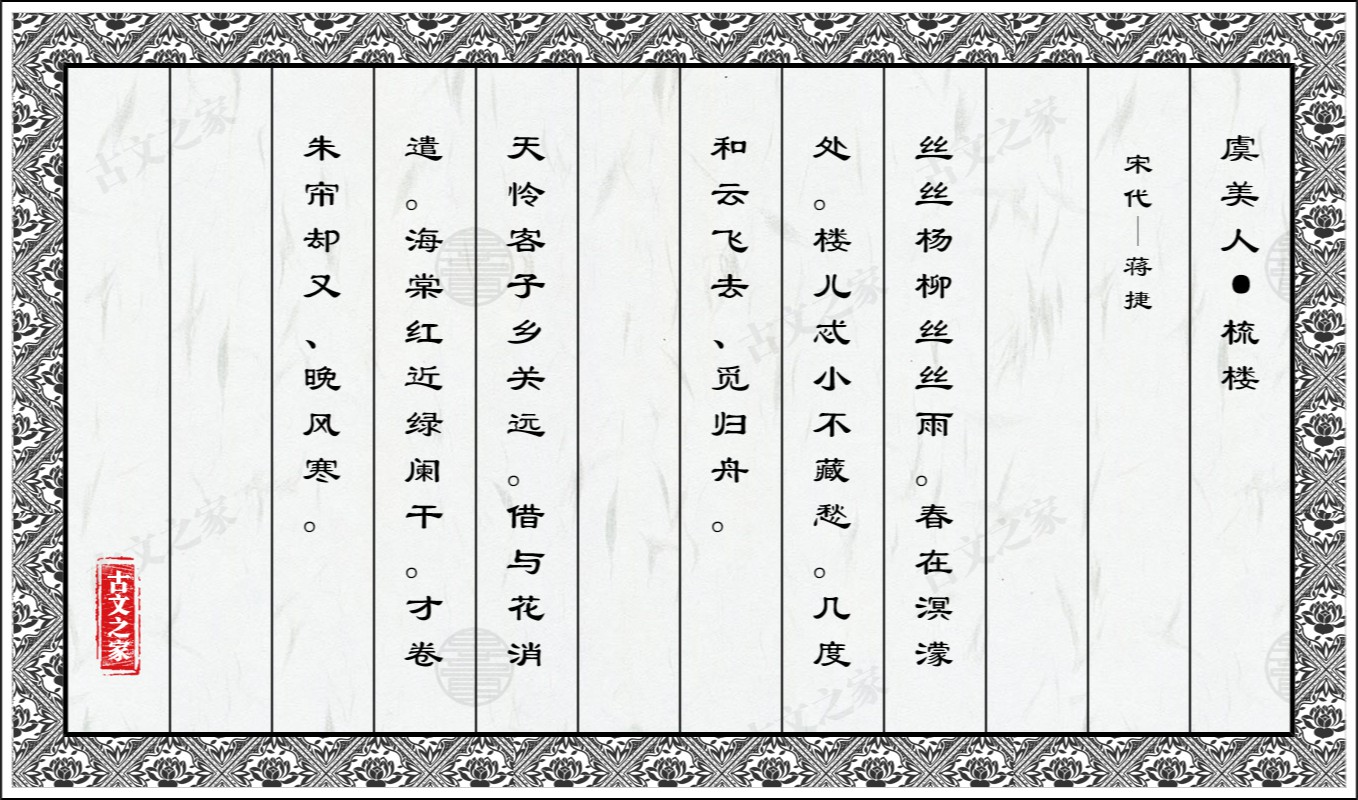 虞美人●梳楼
宋代—蒋捷
丝丝杨柳丝丝雨。春在溟濛
处。楼儿忒小不藏愁。几度
和云飞去、觅归舟。
天怜客子乡关远。借与花消
遣。海棠红近绿阑干。才卷
朱帘却又、晚风寒。
古文之家